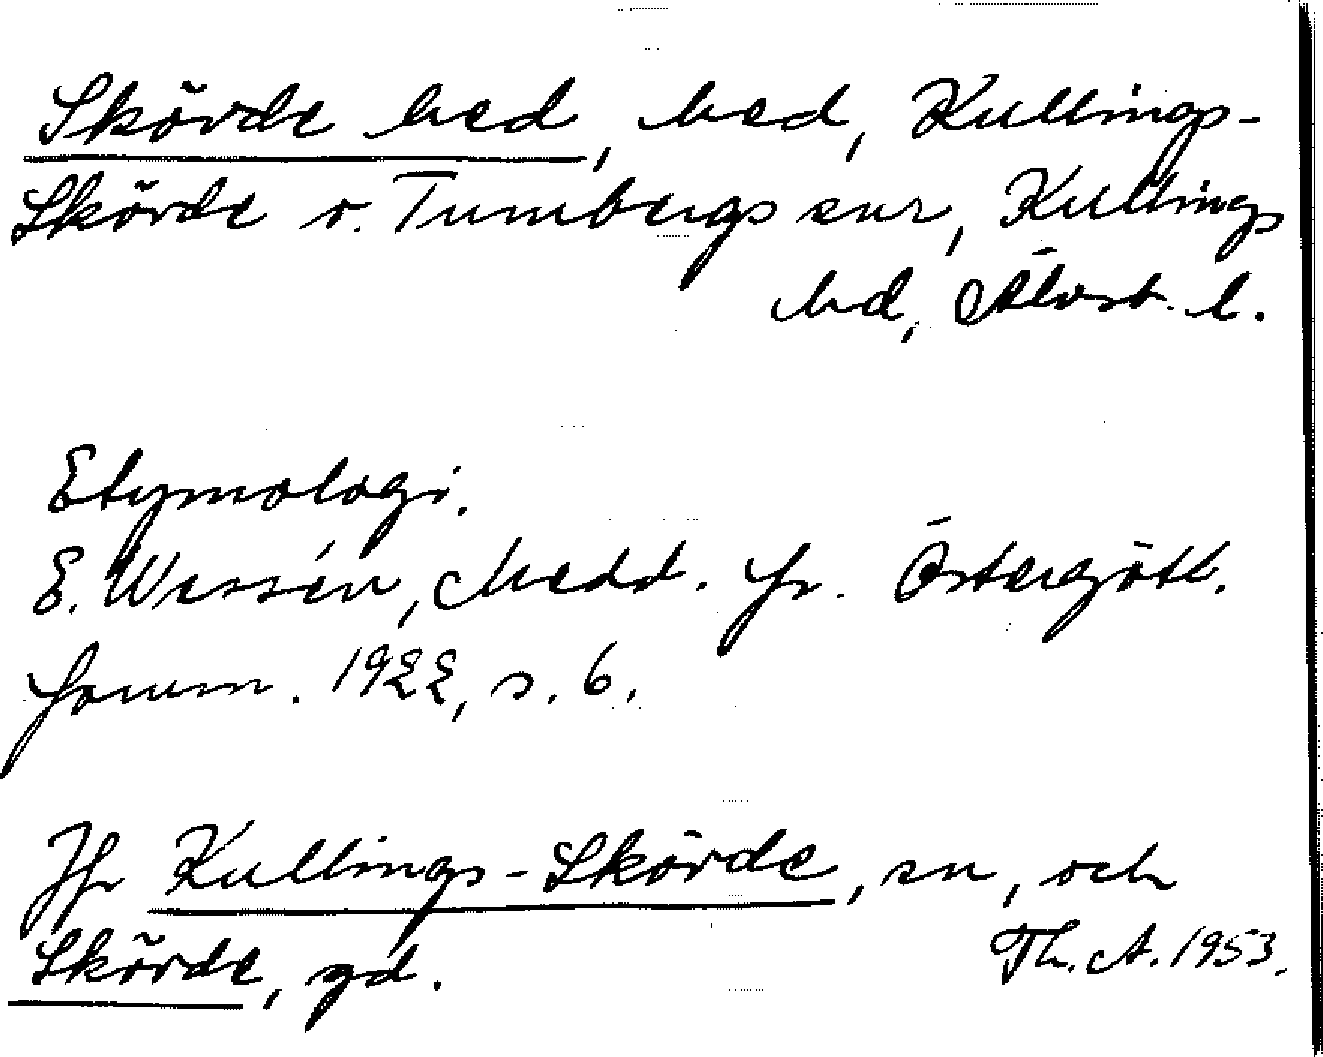 Skörde hed, hed, Kullings-
Skörde o. Tumbergs snr, Kullings
hd, Älvsb. l.
Etymologi.
E. Wessén, Medd. fr. Östergötl.
fornm. 1922, s. 6.
Jfr Kullings-Skörde, sn, och
Skörde, gd.
Th. A. 1953.